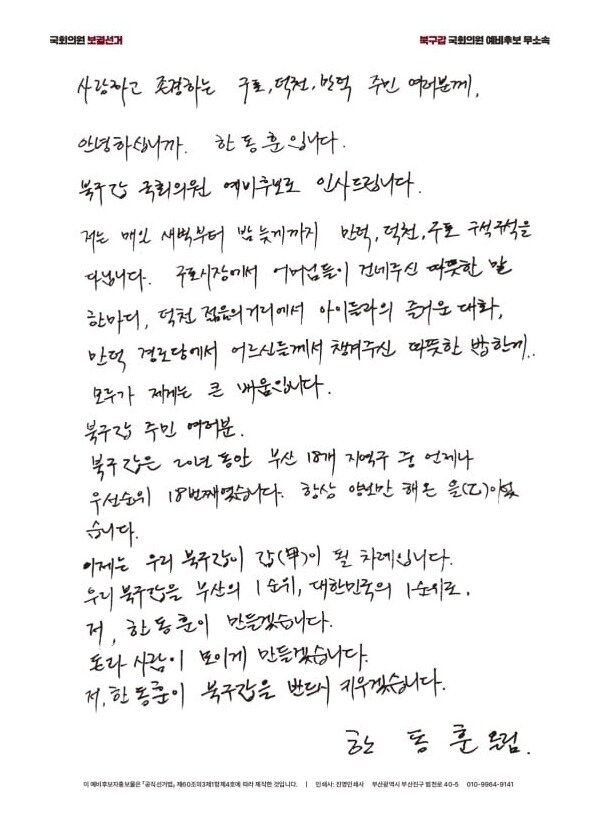 국회의원 보궐선거
북구갑 국회의원 예비후보 무소속
사랑하고 존경하는 구포,덕천,만덕 주민 여러분께,
안녕하십니까. 한동훈입니다.
북구갑 국회의원 예비후보로 인사드립니다.
저는 매일 새벽부터 밤늦게까지 만덕,덕천,구포 구석구석을
다닙니다. 구포시장에서 어머님들이 건네주신 따뜻한 말
한마디, 덕천 젊음의거리에서 아이들과의 즐거운 대화,
만덕 경로당에서 어르신들께서 챙겨주신 따뜻한 밥한끼..
모두가 제게는 큰 배움입니다.
북구갑 주민 여러분.
북구갑은 20년 동안 부산 18개 지역구 중 언제나
우선순위 18번째였습니다. 항상 양보만 해온 을(乙)이었
습니다.
이제는 우리 북구갑이 갑(甲)이 될 차례입니다.
우리 북구갑을 부산의 1순위, 대한민국의 1순위로.
저, 한동훈이 만들겠습니다.
돈과 사람이 모이게 만들겠습니다.
저, 한동훈이 북구갑을 반드시 키우겠습니다.
한 동 훈 올림.
이 예비후보자홍보물은 「공직선거법」 제60조의3제1항제4호에 따라 제작한 것입니다. | 인쇄사: 진영인쇄사 부산광역시 부산진구 범천로 40-5 010-9964-9141